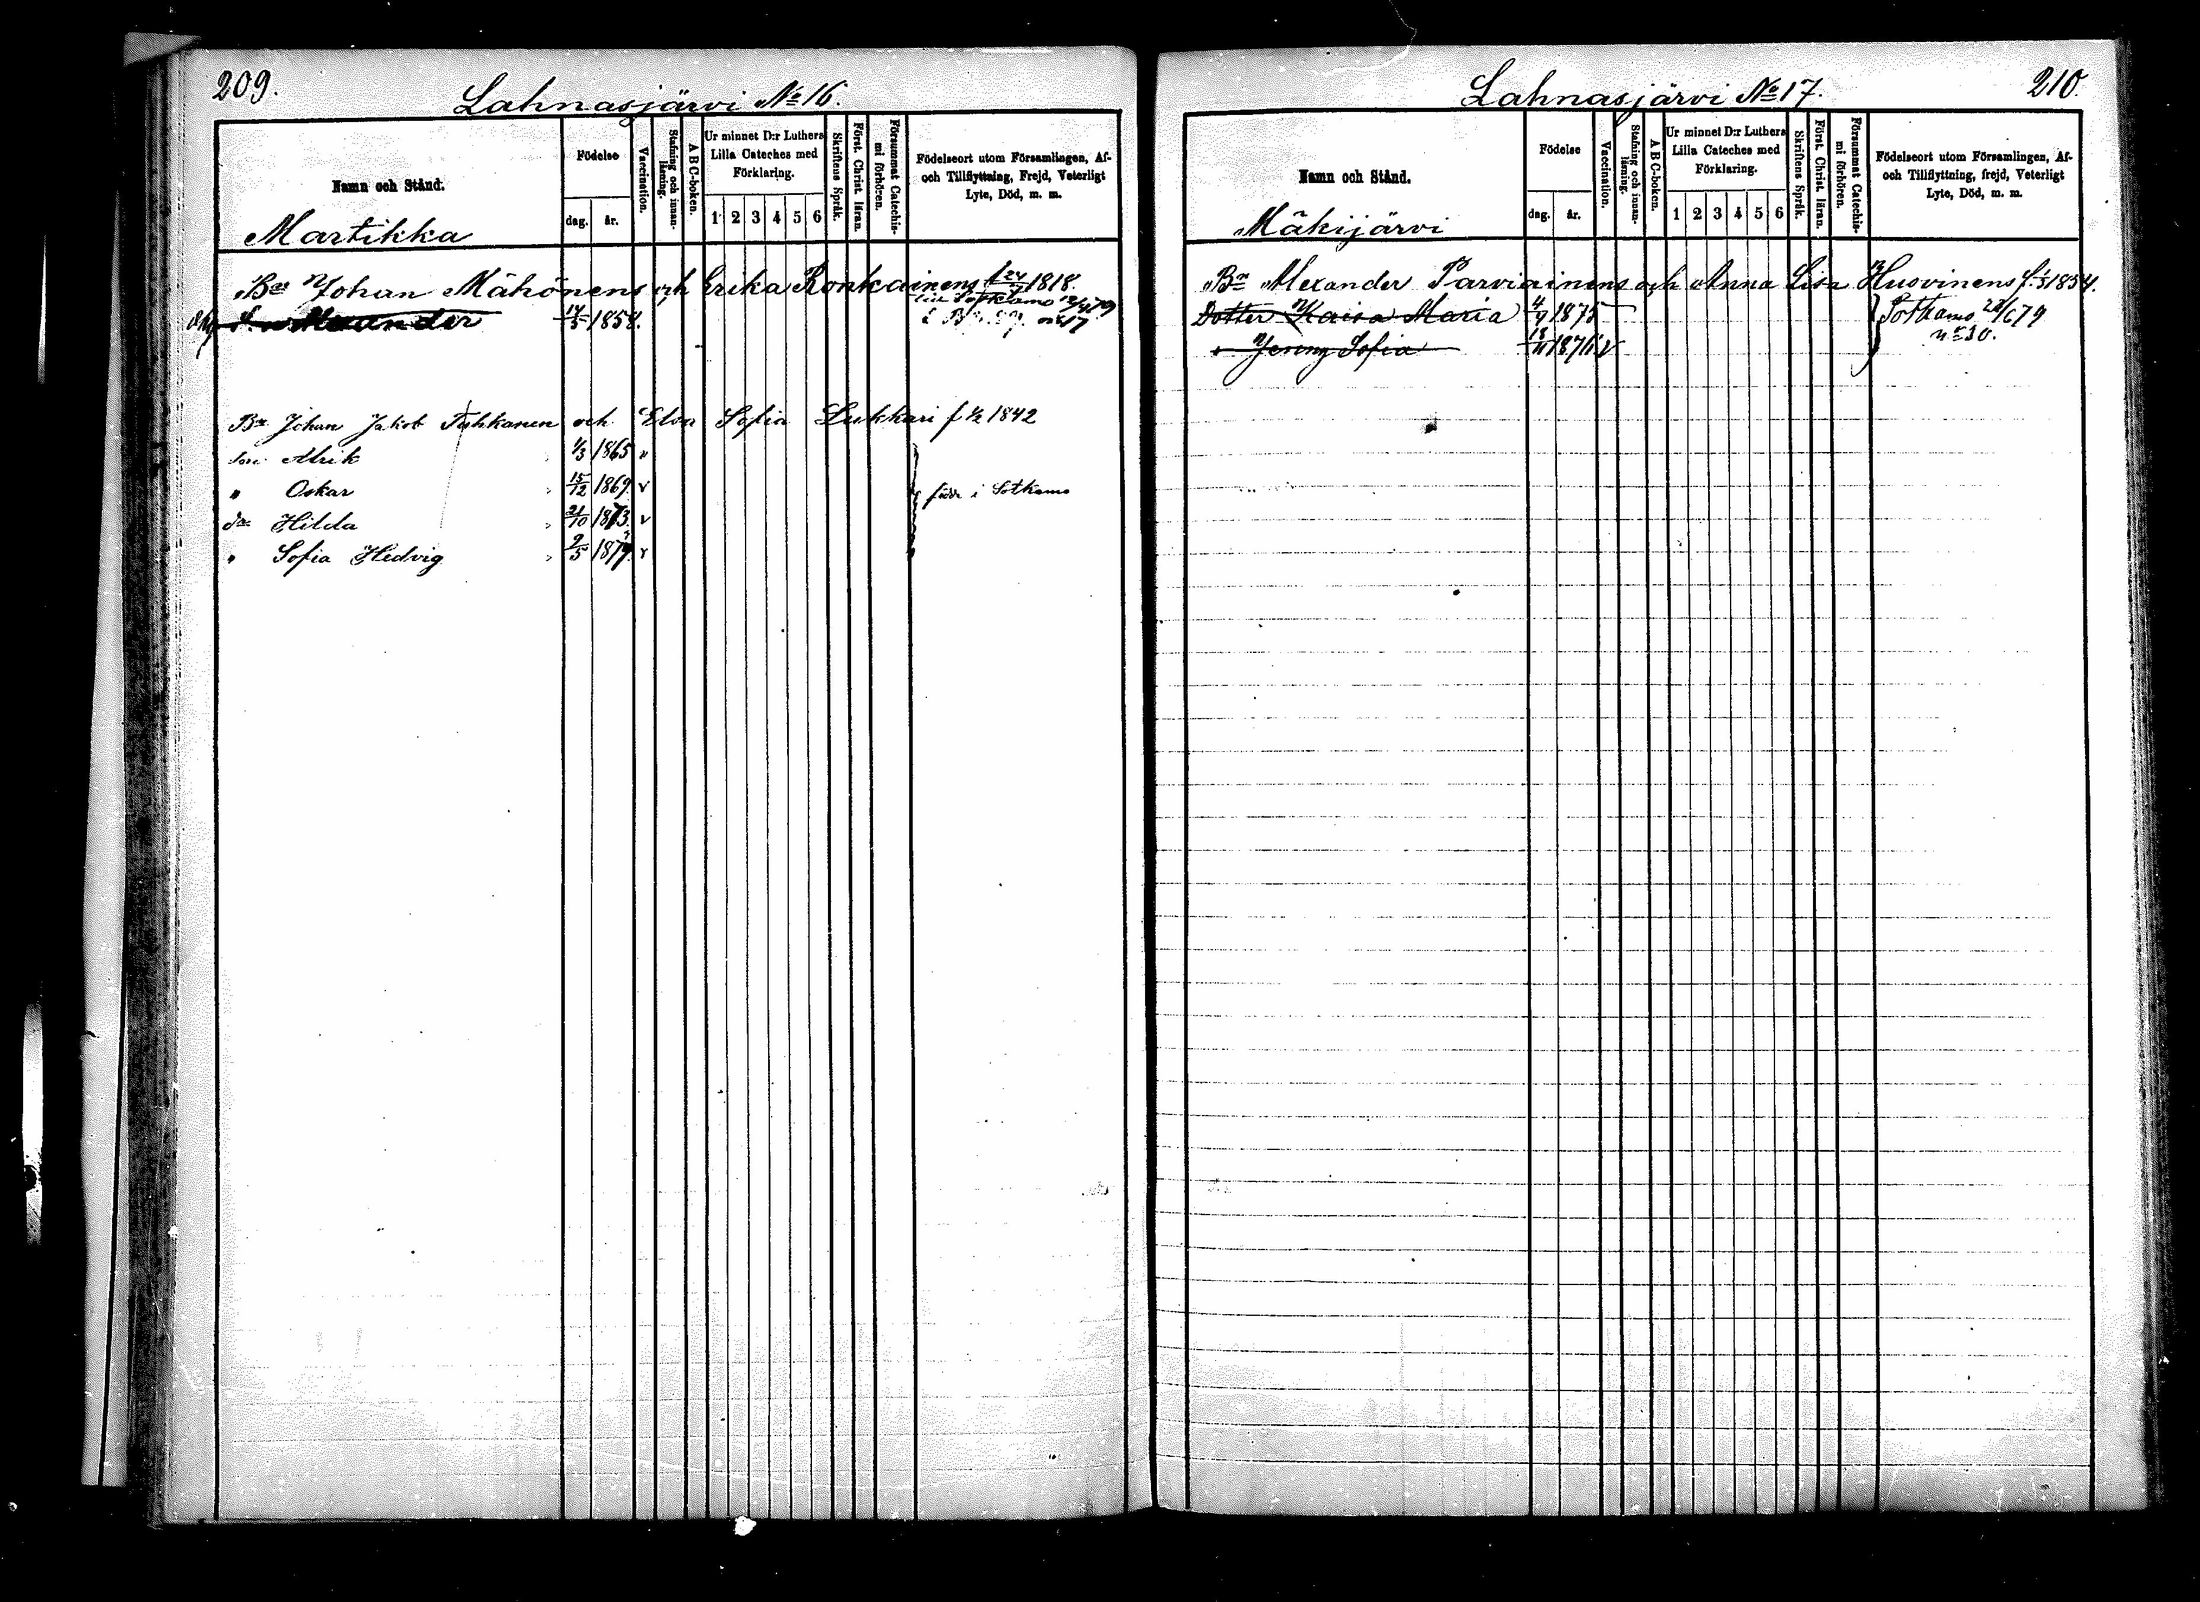 209.
Lahnasjärvi No 16.
Namn och Stånd.
Födelse
dag. år.
Vaccination.
Stafning och innan-läsning.
A B C-boken.
Ur minnet D:r Luthers
Lilla Cateches med
Förklaring.
1 2 3 4 5 6
Skriftens Språk.
Först. Christ. läran.
Försummat Catechis-
mi förhören.
Födelseort utom Församlingen, Af-
och Tillflyttning, Frejd, Veterligt
Lyte, Död, m. m.
Martikka
Bn Johan Mähönens och Erika Ronkainens f. 24/7 1818.
till Sotkamo 12/4 79
Alexander 14/5 1858. no 17
Bn Johan Jakob Tuhkanen och Elsa Sofia Lukkari f 1/2 1842
son Alrik 1/3 1865 v
" Oskar 15/12 1869 v född i Sotkamo
dr Hilda 21/10 1873 v
" Sofia Hedvig 9/5 1877 v
210.
Lahnasjärvi No 17.
Namn och Stånd.
Födelse
dag. år.
Vaccination.
Stafning och innan-läsning.
A B C-boken.
Ur minnet D:r Luthers
Lilla Cateches med
Förklaring.
1 2 3 4 5 6
Skriftens Språk.
Först. Christ. läran.
Försummat Catechis-
mi förhören.
Födelseort utom Församlingen, Af-
och Tillflyttning, frejd, Veterligt
Lyte, Död, m. m.
Mäkijärvi
Bn Alexander Parviainens och Anna Lisa Husvinens f. 1854.
Dotter Kaisa Maria 4/9 1875 Sotkamo 24/6 79
" Jenny Sofia 18/11 1876 v no 30.